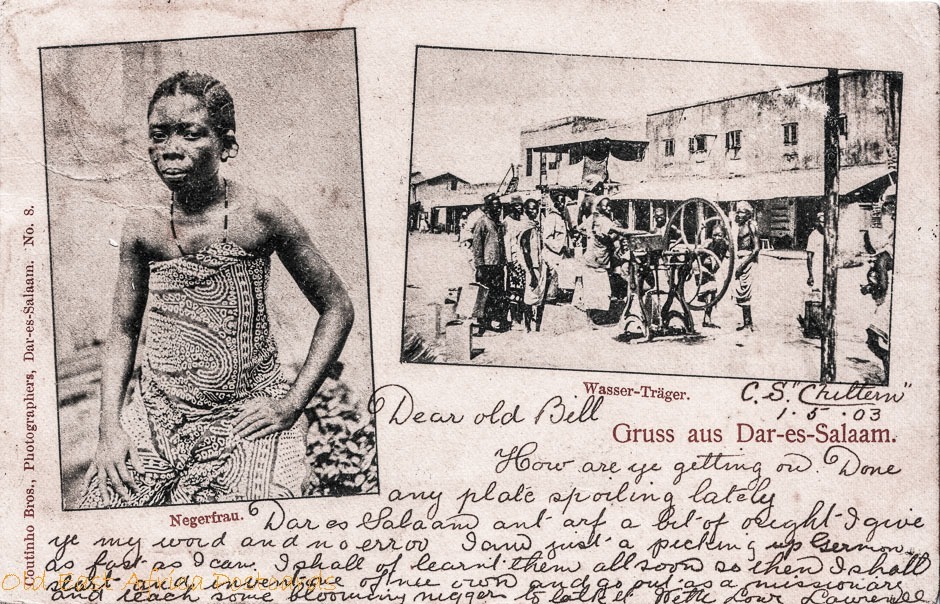 Coutinho Bros., Photographers, Dar-es-Salaam. No. 8.
Negerfrau.
Wasser-Träger.
C.S. "Chiltern"
1.5.03
Gruss aus Dar-es-Salaam.
Dear old Bill
How are ye getting on. Done
any plate spoiling lately
Dar es Salaam ant arf a bit of oright I give
ye my word and no error I am just a picking up German
as fast as I can. I shall of learnt them all soon so then I shall
start a language of me own and go out as a missionary
and teach some blooming nigger to talk it With Love Lawrence
Old East Africa Postcards